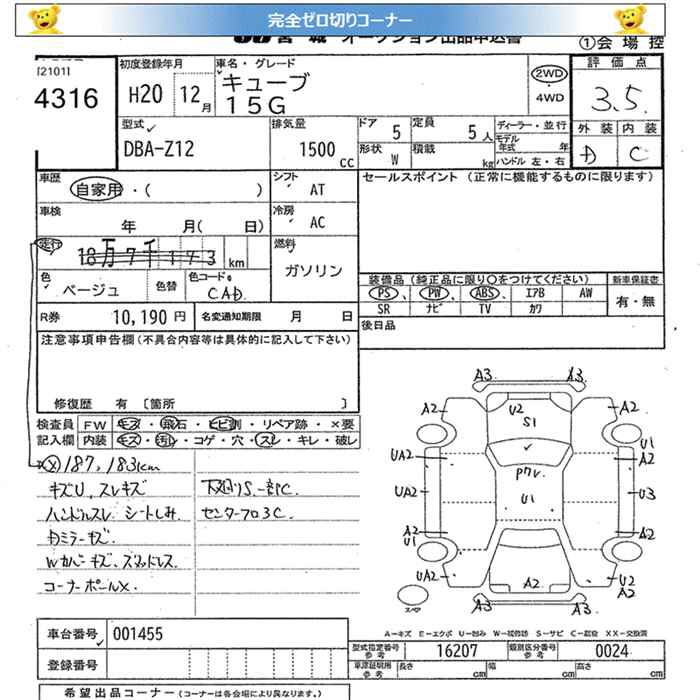 完全ゼロ切りコーナー
宮城 オークション出品申込書 ①会場控
[2101]
4316
初度登録年月 H20 12月
車名・グレード キューブ 15G
2WD ・ 4WD
評価点 3.5
外装 内装
D C
型式 DBA-Z12
排気量 1500 cc
ドア 5 定員 5人
形状 W 積載 kg
ディーラー・並行
モデル年式 年
ハンドル 左・右
車歴 自家用・( )
シフト AT
セールスポイント (正常に機能するものに限ります)
車検 年 月( 日)
冷房 AC
走行 18万7千173 km
燃料 ガソリン
色 ベージュ 色替 色コードNo. CAD
装備品 (純正品に限り○をつけてください) 新車保証書
PS、 PW、 ABS、 エアB AW 有・無
SR ナビ TV カワ
R券 10,190円 名変通知期限 月 日
後日品
注意事項申告欄 (不具合内容等は具体的に記入して下さい)
修復歴 有 〔箇所 〕
検査員 FW キズ・飛石・ヒビ割・リペア跡・×要
記入欄 内装 キズ・汚レ・コゲ・穴・スレ・キレ・破レ
ⓧ187,183km
キズU、スレキズ 下廻りS、一部C.
ハンドルスレ シートしみ センターフロ3C.
カミラーキズ.
コーナーポールX.
A3 A3
A2 U2 S1 A2
U1
UA2 A2
UA2 U1 U3
A2 U1 A2
UA2 A2 U2 A2
スペア A3 A3
A-キズ E-エクボ U-凹み W-補修跡 S-サビ C-腐食 XX-交換済
車台番号 001455
型式指定番号 参考 16207 類別区分番号 参考 0024
登録番号
車庫証明用 参考 長さ cm 幅 cm 高さ cm
希望出品コーナー (コーナーは各会場により異なります。)